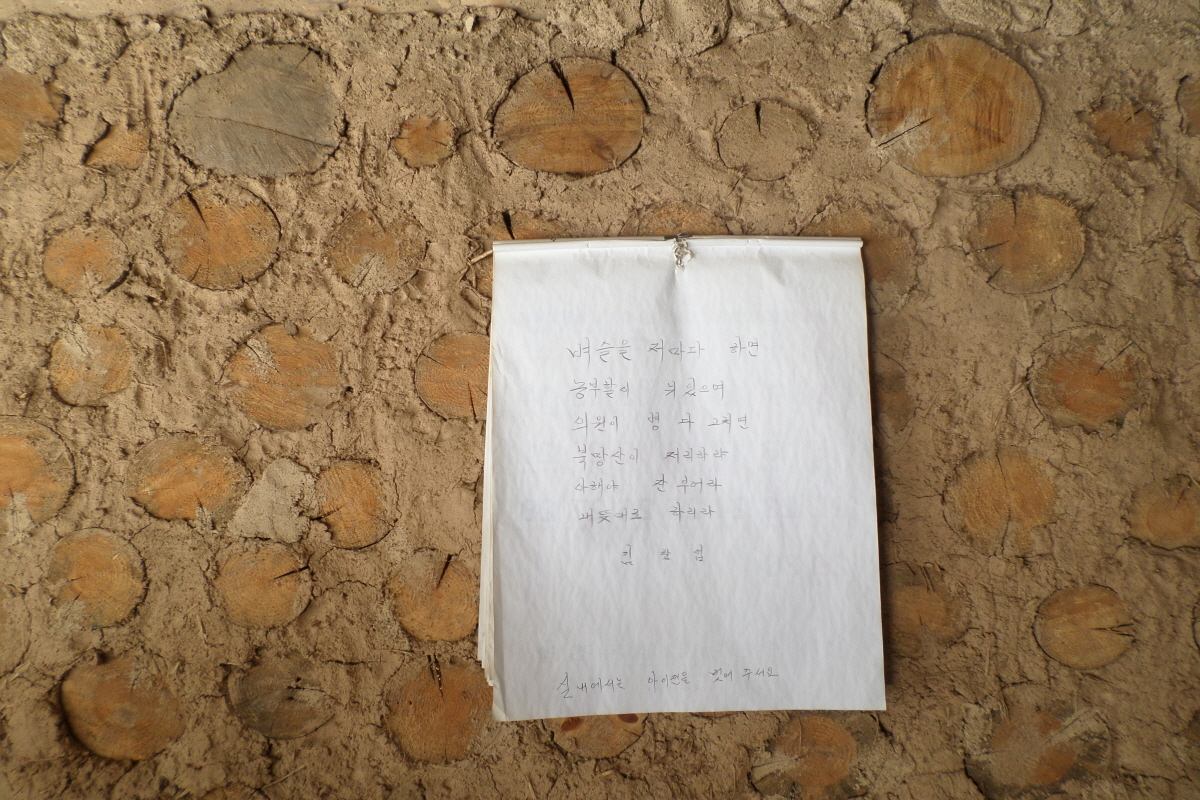 벼슬을 저마다 하면
농부할이 뉘 있으며
의원이 병 다 고치면
북망산이 저리하랴
아해야 잔 부어라
내 뜻대로 하리라
김 창 업
실내에서는 아이젠을 벗어 주세요